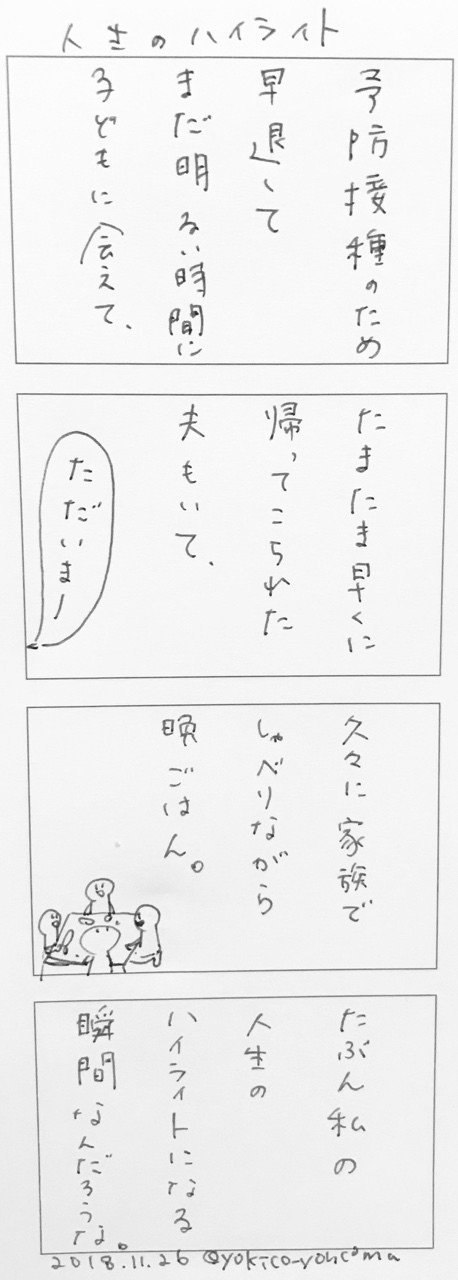 人生のハイライト
予防接種のため
早退して
まだ明るい時間に
子どもに会えて、
たまたま早くに
帰ってこられた
夫もいて、
ただいまー
久々に家族で
しゃべりながら
晩ごはん。
たぶん私の
人生の
ハイライトになる
瞬間なんだろうな。
2018.11.26 @yokico-yoncoma